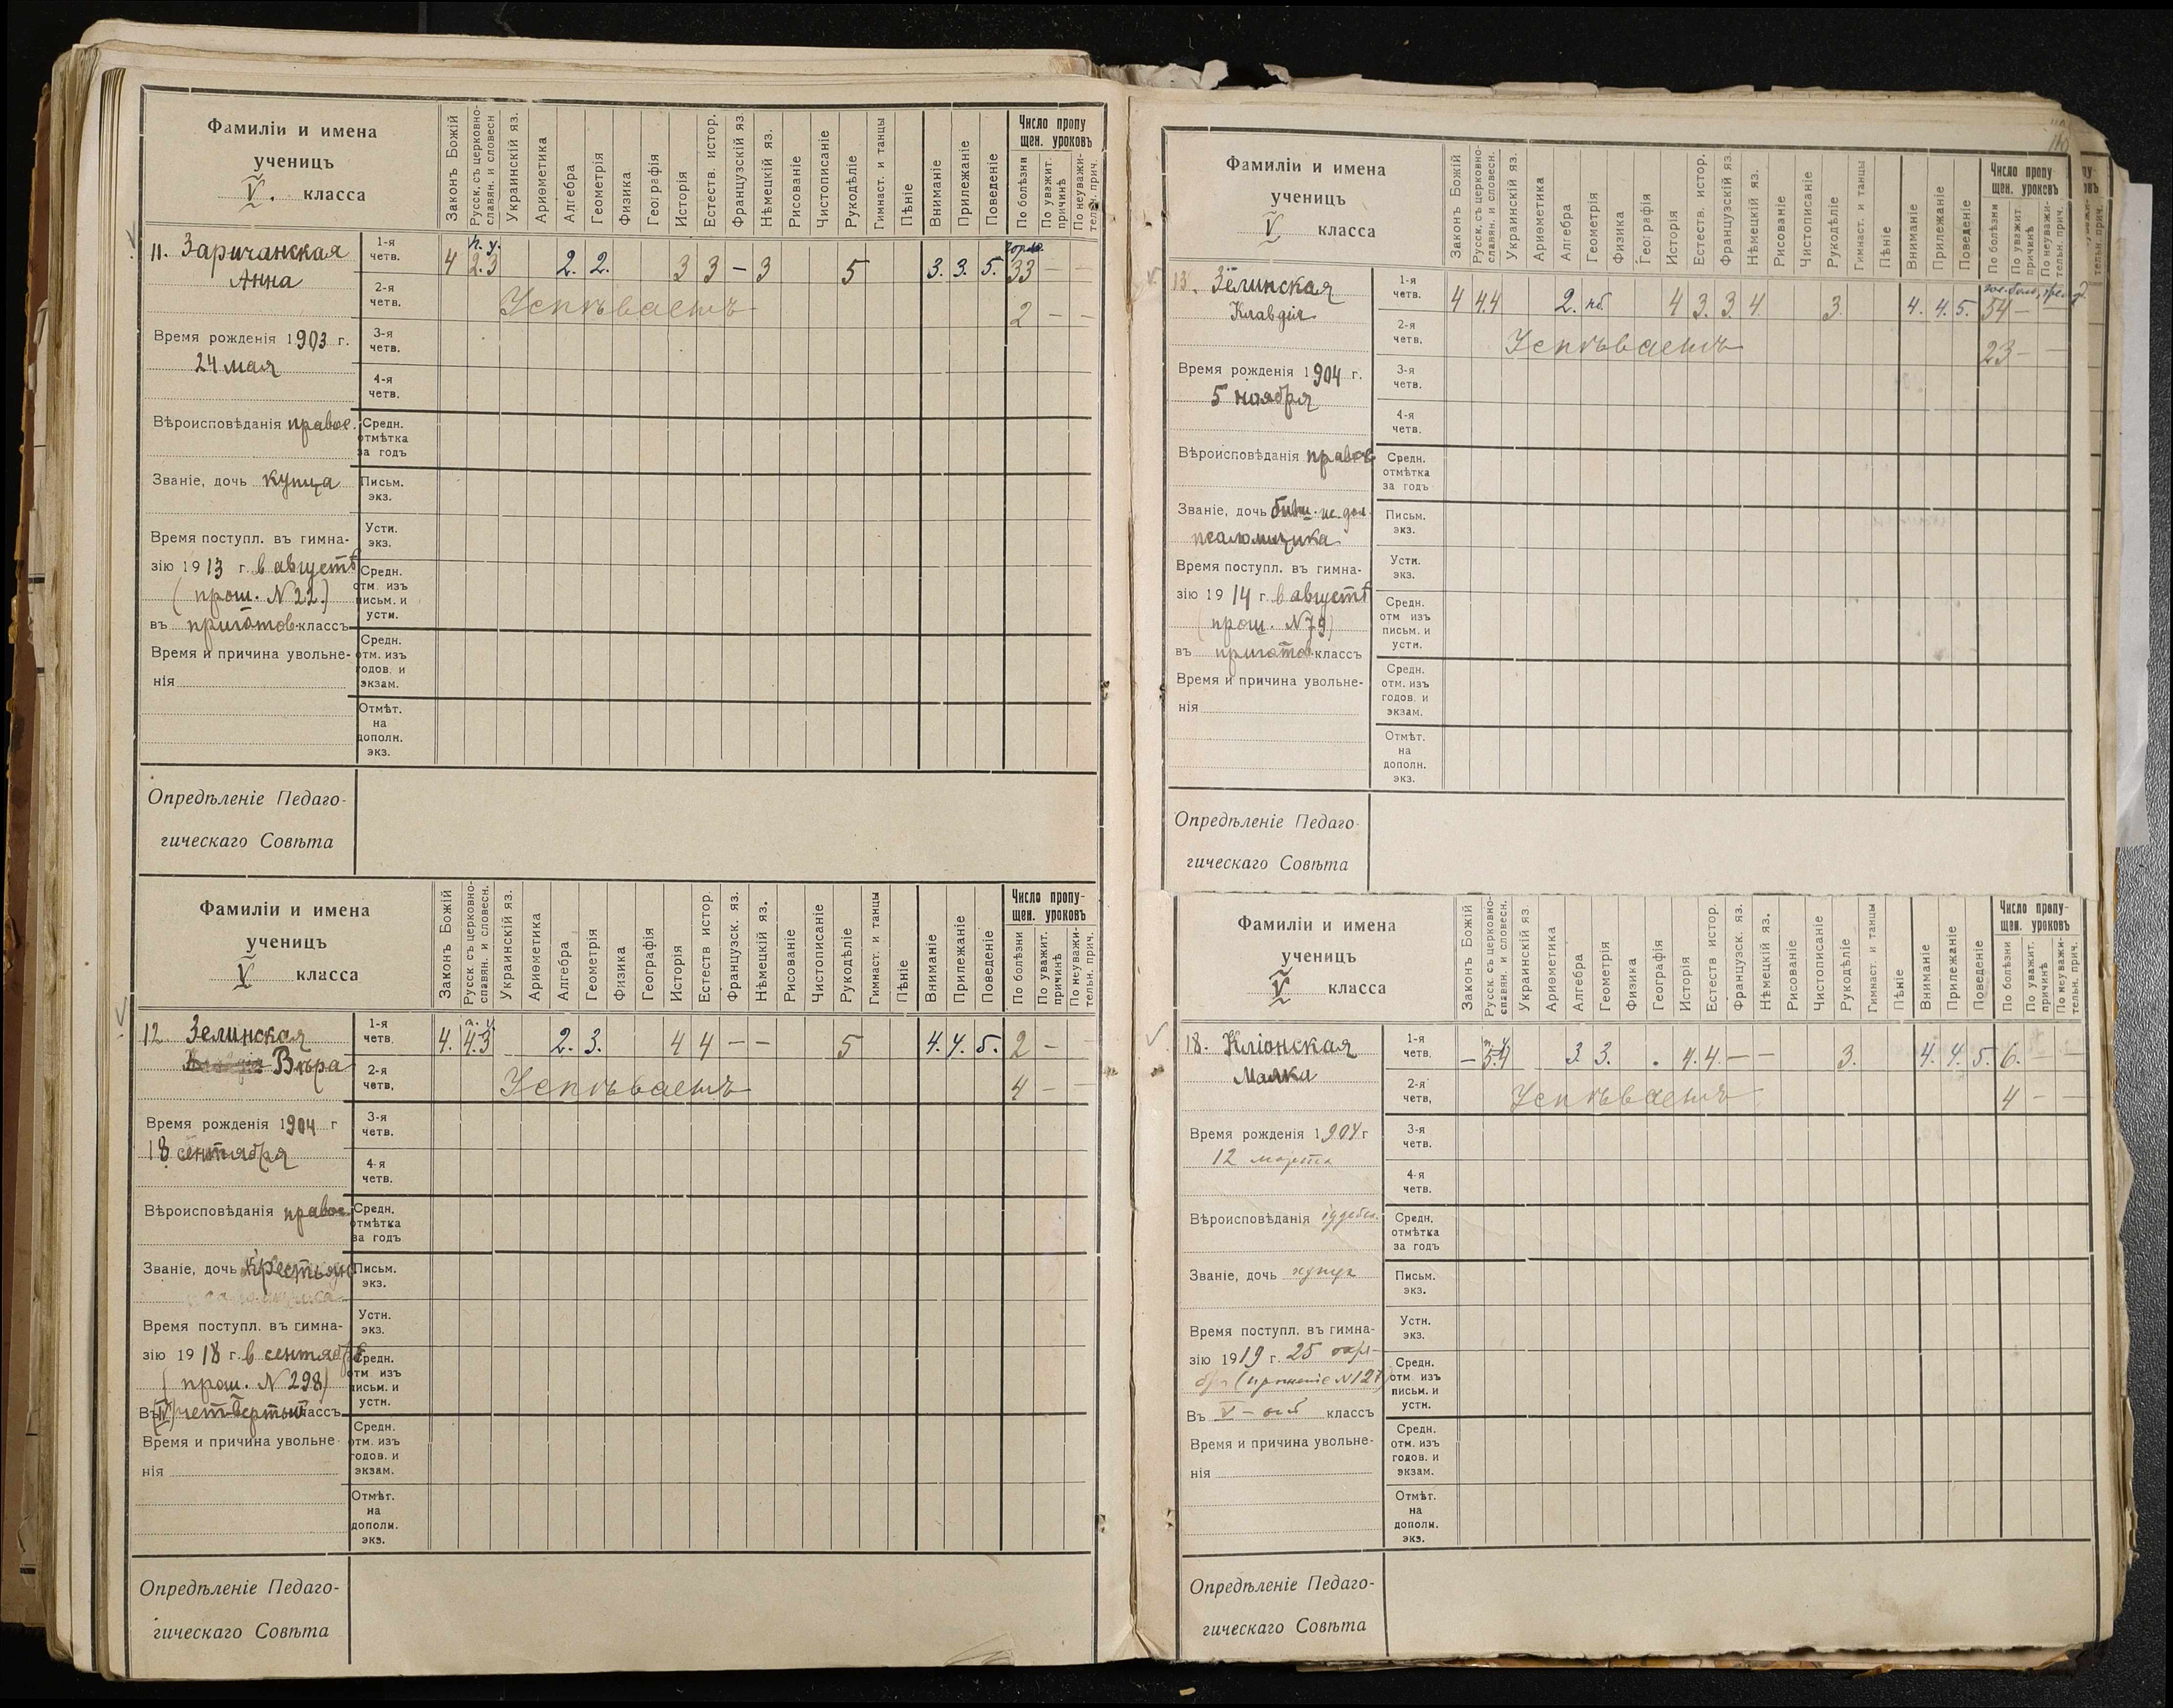 Фамиліи и имена
ученицъ
V. класса
Законъ Божій
Русск. съ церковно-
славян. и словесн
Украинскій яз.
Ариѳметика
Алгебра
Геометрія
Физика
Географія
Исторія
Естеств. истор.
Французскій яз.
Нѣмецкій яз.
Рисованіе
Чистописаніе
Рукодѣліе
Гимнаст. и танцы
Пѣніе
Вниманіе
Прилежаніе
Поведеніе
Число пропу
щен. уроковъ
По болѣзни
По уважит.
причинѣ
По неуважи-
тельн. прич.
11. Заричанская
Анна
1-я
четв.
п. у.
4 2.3 2. 2. 3 3 – 3 5 3. 3. 5. 33 – –
2-я
четв.
Успѣваетъ 2 – –
Время рожденія 1903 г.
24 мая
3-я
четв.
4-я
четв.
Вѣроисповѣданія правос.
Средн.
отмѣтка
за годъ
Званіе, дочь купца
Письм.
экз.
Время поступл. въ гимна-
зію 1913 г. в августѣ
(прош. N 22.)
въ приготов. классъ
Устн.
экз.
Средн.
отм. изъ
письм. и
устн.
Время и причина увольне-
нія
Средн.
отм. изъ
годов. и
экзам.
Отмѣт.
на
дополн.
экз.
Опредѣленіе Педаго-
гическаго Совѣта
Фамиліи и имена
ученицъ
V класса
Законъ Божій
Русск. съ церковно-
славян. и словесн.
Украинскій яз.
Ариѳметика
Алгебра
Геометрія
Физика
Географія
Исторія
Естеств истор.
Французск. яз.
Нѣмецкій яз.
Рисованіе
Чистописаніе
Рукодѣліе
Гимнаст. и танцы
Пѣніе
Вниманіе
Прилежаніе
Поведеніе
Число пропу-
щен. уроковъ
По болѣзни
По уважит.
причинѣ
По неуважи-
тельн. прич.
12 Зелинская
Вѣра
1-я
четв.
п. у.
4. 4.3 2. 3. 4 4 – – 5 4. 4. 5. 2 – –
2-я
четв,
Успѣваетъ 4 – –
Время рожденія 1904 г
18 сентября
3-я
четв.
4-я
четв.
Вѣроисповѣданія правос.
Средн.
отмѣтка
за годъ
Званіе, дочь крестьян
псаломщика
Письм.
экз.
Время поступл. въ гимна-
зію 1918 г. в сентябрѣ
(прош. N 298)
Въ (IV) четвертый классъ
Устн.
экз.
Средн.
отм изъ
письм. и
устн.
Время и причина увольне-
нія
Средн.
отм. изъ
годов. и
экзам.
Отмѣт.
на
дополн.
экз.
Опредѣленіе Педаго-
гическаго Совѣта
Фамиліи и имена
ученицъ
V класса
Законъ Божій
Русск. съ церковно-
славян. и словесн.
Украинскій яз.
Ариѳметика
Алгебра
Геометрія
Физика
Географія
Исторія
Естеств. истор.
Французскій яз.
Нѣмецкій яз.
Рисованіе
Чистописаніе
Рукодѣліе
Гимнаст. и танцы
Пѣніе
Вниманіе
Прилежаніе
Поведеніе
Число пропу
щен. уроковъ
По болѣзни
По уважит.
причинѣ
По неуважи-
тельн. прич.
13. Зелинская
Клавдія
1-я
четв.
4 4.4 2. нб. 4 3. 3. 4. 3. 4. 4. 5. 54 – –
2-я
четв,
Успѣваетъ 23 – –
Время рожденія 1904 г.
5 ноября
3-я
четв.
4-я
четв.
Вѣроисповѣданія правос
Средн.
отмѣтка
за годъ
Званіе, дочь бывш. ис. дол.
псаломщика
Письм.
экз.
Время поступл. въ гимна-
зію 1914 г. в августѣ
(прош. N 79)
въ пригото. классъ
Устн.
экз.
Средн.
отм изъ
письм. и
устн.
Время и причина увольне-
нія
Средн.
отм. изъ
годов. и
экзам.
Отмѣт.
на
дополн.
экз.
Опредѣленіе Педаго-
гическаго Совѣта
Фамиліи и имена
ученицъ
V класса
Законъ Божій
Русск. съ церковно-
славян. и словесн.
Украинскій яз.
Ариѳметика
Алгебра
Геометрія
Физика
Географія
Исторія
Естеств истор.
Французск. яз.
Нѣмецкій яз.
Рисованіе
Чистописаніе
Рукодѣліе
Гимнаст. и танцы
Пѣніе
Вниманіе
Прилежаніе
Поведеніе
Число пропу-
щен. уроковъ
По болѣзни
По уважит.
причинѣ
По неуважи-
тельн. прич.
18. Кліонская
Малка
1-я
четв.
п. у.
– 3.4 3. 3. 4. 4. – – 3. 4. 4. 5. 6. – –
2-я
четв,
Успѣваетъ 4 – –
Время рожденія 1904 г
12 марта
3-я
четв.
4-я
четв.
Вѣроисповѣданія іудейск.
Средн.
отмѣтка
за годъ
Званіе, дочь купца
Письм.
экз.
Время поступл. въ гимна-
зію 1919 г. 25
(прошеніе N 127)
Въ V–ой классъ
Устн.
экз.
Средн.
отм. изъ
письм. и
устн.
Время и причина увольне-
нія
Средн.
отм. изъ
годов. и
экзам.
Отмѣт.
на
дополн.
экз.
Опредѣленіе Педаго-
гическаго Совѣта